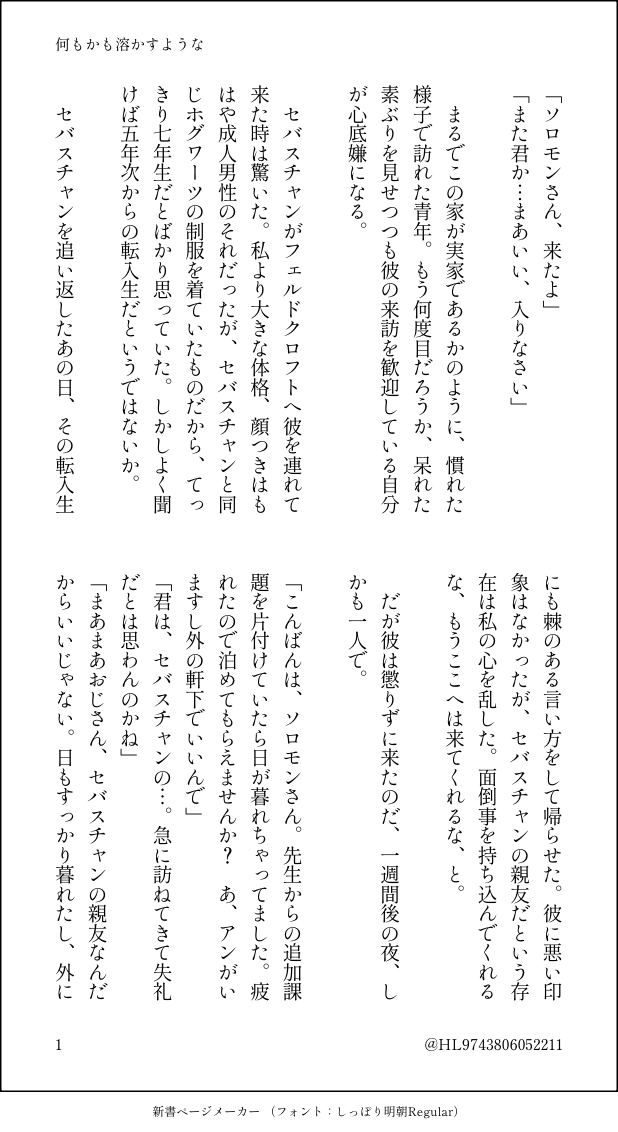 何もかも溶かすような
「ソロモンさん、来たよ」
「また君か…まあいい、入りなさい」
まるでこの家が実家であるかのように、慣れた
様子で訪れた青年。もう何度目だろうか、呆れた
素ぶりを見せつつも彼の来訪を歓迎している自分
が心底嫌になる。
セバスチャンがフェルドクロフトへ彼を連れて
来た時は驚いた。私より大きな体格、顔つきはも
はや成人男性のそれだったが、セバスチャンと同
じホグワーツの制服を着ていたものだから、てっ
きり七年生だとばかり思っていた。しかしよく聞
けば五年次からの転入生だというではないか。
セバスチャンを追い返したあの日、その転入生
にも棘のある言い方をして帰らせた。彼に悪い印
象はなかったが、セバスチャンの親友だという存
在は私の心を乱した。面倒事を持ち込んでくれる
な、もうここへは来てくれるな、と。
だが彼は懲りずに来たのだ、一週間後の夜、し
かも一人で。
「こんばんは、ソロモンさん。先生からの追加課
題を片付けていたら日が暮れちゃってました。疲
れたので泊めてもらえませんか？　あ、アンがい
ますし外の軒下でいいんで」
「君は、セバスチャンの…。急に訪ねてきて失礼
だとは思わんのかね」
「まあまあおじさん、セバスチャンの親友なんだ
からいいじゃない。日もすっかり暮れたし、外に
1
@HL9743806052211
新書ページメーカー（フォント：しっぽり明朝Regular）